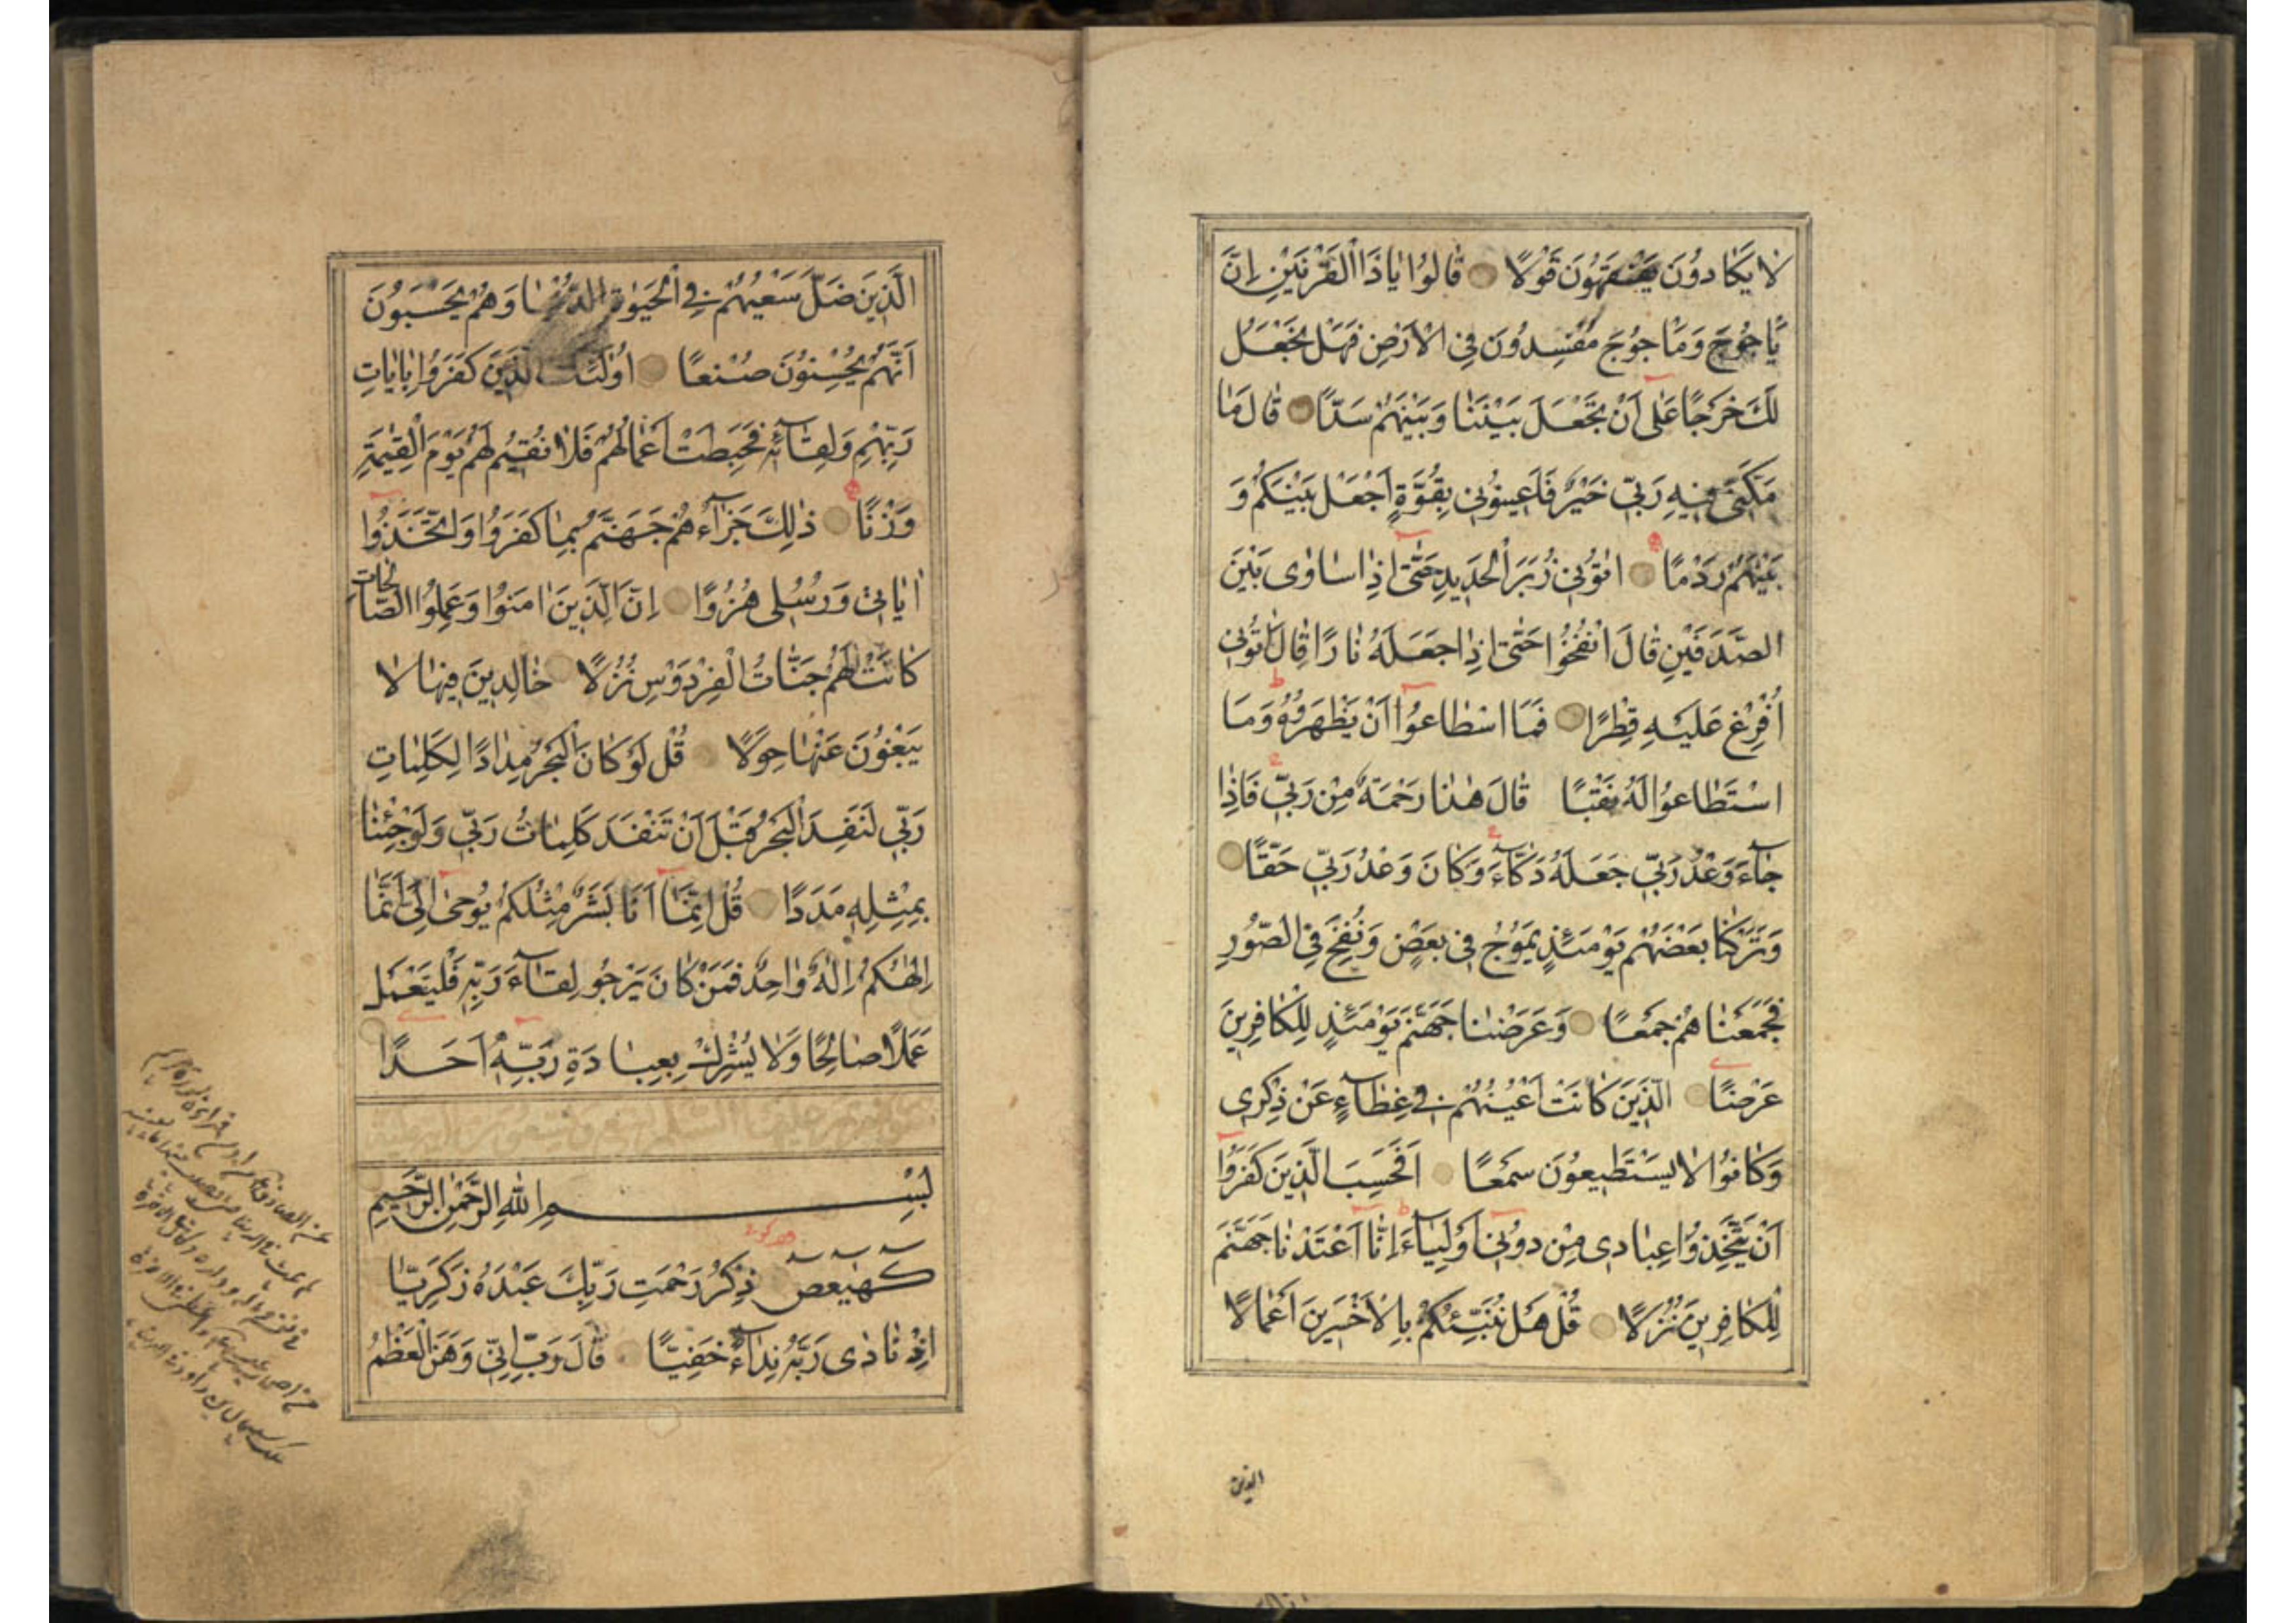 لا يَكَادُونَ يَفْقَهُونَ قَوْلًا قَالُوا يَا ذَا الْقَرْنَيْنِ إِنَّ
يَأْجُوجَ وَمَأْجُوجَ مُفْسِدُونَ فِي الْأَرْضِ فَهَلْ نَجْعَلُ
لَكَ خَرْجًا عَلَى أَنْ تَجْعَلَ بَيْنَنَا وَبَيْنَهُمْ سَدًّا قَالَ مَا
مَكَّنِّي فِيهِ رَبِّي خَيْرٌ فَأَعِينُونِي بِقُوَّةٍ أَجْعَلْ بَيْنَكُمْ وَ
بَيْنَهُمْ رَدْمًا اتُونِي زُبَرَ الْحَدِيدِ حَتَّى إِذَا سَاوَى بَيْنَ
الصَّدَفَيْنِ قَالَ انْفُخُوا حَتَّى إِذَا جَعَلَهُ نَارًا قَالَ اتُونِي
أُفْرِغْ عَلَيْهِ قِطْرًا فَمَا اسْطَاعُوا أَنْ يَظْهَرُوهُ وَمَا
اسْتَطَاعُوا لَهُ نَقْبًا قَالَ هٰذَا رَحْمَةٌ مِنْ رَبِّي فَإِذَا
جَاءَ وَعْدُ رَبِّي جَعَلَهُ دَكَّاءَ وَكَانَ وَعْدُ رَبِّي حَقًّا
وَتَرَكْنَا بَعْضَهُمْ يَوْمَئِذٍ يَمُوجُ فِي بَعْضٍ وَنُفِخَ فِي الصُّورِ
فَجَمَعْنَاهُمْ جَمْعًا وَعَرَضْنَا جَهَنَّمَ يَوْمَئِذٍ لِلْكَافِرِينَ
عَرْضًا الَّذِينَ كَانَتْ أَعْيُنُهُمْ فِي غِطَاءٍ عَنْ ذِكْرِي
وَكَانُوا لَا يَسْتَطِيعُونَ سَمْعًا أَفَحَسِبَ الَّذِينَ كَفَرُوا
أَنْ يَتَّخِذُوا عِبَادِي مِنْ دُونِي أَوْلِيَاءَ إِنَّا أَعْتَدْنَا جَهَنَّمَ
لِلْكَافِرِينَ نُزُلًا قُلْ هَلْ نُنَبِّئُكُمْ بِالْأَخْسَرِينَ أَعْمَالًا
الذين
الَّذِينَ ضَلَّ سَعْيُهُمْ فِي الْحَيٰوةِ الدُّنْيَا وَهُمْ يَحْسَبُونَ
أَنَّهُمْ يُحْسِنُونَ صُنْعًا أُولٰئِكَ الَّذِينَ كَفَرُوا بِايَاتِ
رَبِّهِمْ وَلِقَائِهِ فَحَبِطَتْ أَعْمَالُهُمْ فَلَا نُقِيمُ لَهُمْ يَوْمَ الْقِيٰمَةِ
وَزْنًا ذٰلِكَ جَزَاؤُهُمْ جَهَنَّمُ بِمَا كَفَرُوا وَاتَّخَذُوا
ايَاتِي وَرُسُلِي هُزُوًا إِنَّ الَّذِينَ امَنُوا وَعَمِلُوا الصَّالِحَاتِ
كَانَتْ لَهُمْ جَنَّاتُ الْفِرْدَوْسِ نُزُلًا خَالِدِينَ فِيهَا لَا
يَبْغُونَ عَنْهَا حِوَلًا قُلْ لَوْ كَانَ الْبَحْرُ مِدَادًا لِكَلِمَاتِ
رَبِّي لَنَفِدَ الْبَحْرُ قَبْلَ أَنْ تَنْفَدَ كَلِمَاتُ رَبِّي وَلَوْ جِئْنَا
بِمِثْلِهِ مَدَدًا قُلْ إِنَّمَا أَنَا بَشَرٌ مِثْلُكُمْ يُوحَى إِلَيَّ أَنَّمَا
إِلٰهُكُمْ إِلٰهٌ وَاحِدٌ فَمَنْ كَانَ يَرْجُو لِقَاءَ رَبِّهِ فَلْيَعْمَلْ
عَمَلًا صَالِحًا وَلَا يُشْرِكْ بِعِبَادَةِ رَبِّهِ أَحَدًا
بِسْمِ اللهِ الرَّحْمٰنِ الرَّحِيمِ
كهيعص ذِكْرُ رَحْمَتِ رَبِّكَ عَبْدَهُ زَكَرِيَّا
إِذْ نَادَى رَبَّهُ نِدَاءً خَفِيًّا قَالَ رَبِّ إِنِّي وَهَنَ الْعَظْمُ